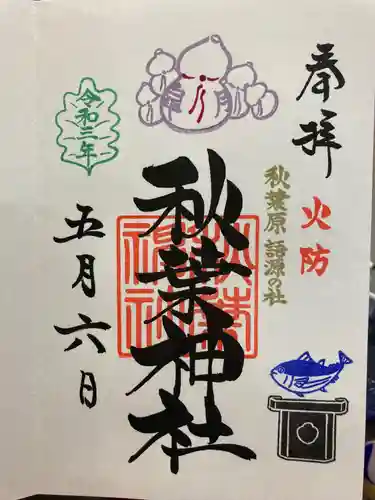 奉拝
火防
秋葉原 語源の社
秋葉神社
令和三年
五月六日